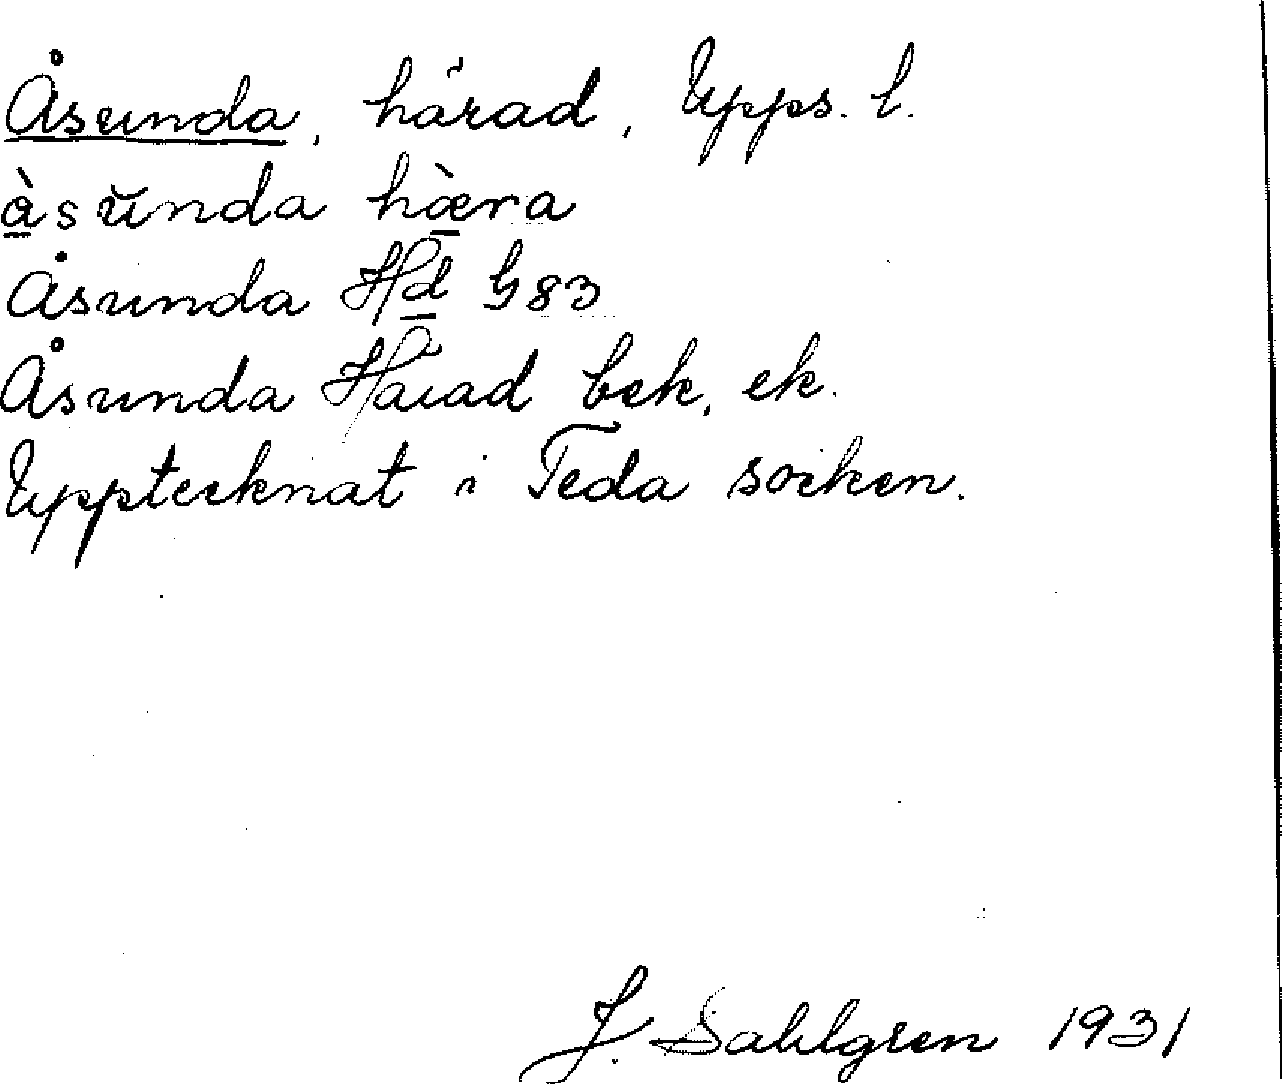 Åsunda, härad, Upps. l.
àsŭnda hæ̀ra
Åsunda Hd G83
Åsunda Härad bek. ek.
Upptecknat i Teda socken.
J. Sahlgren 1931